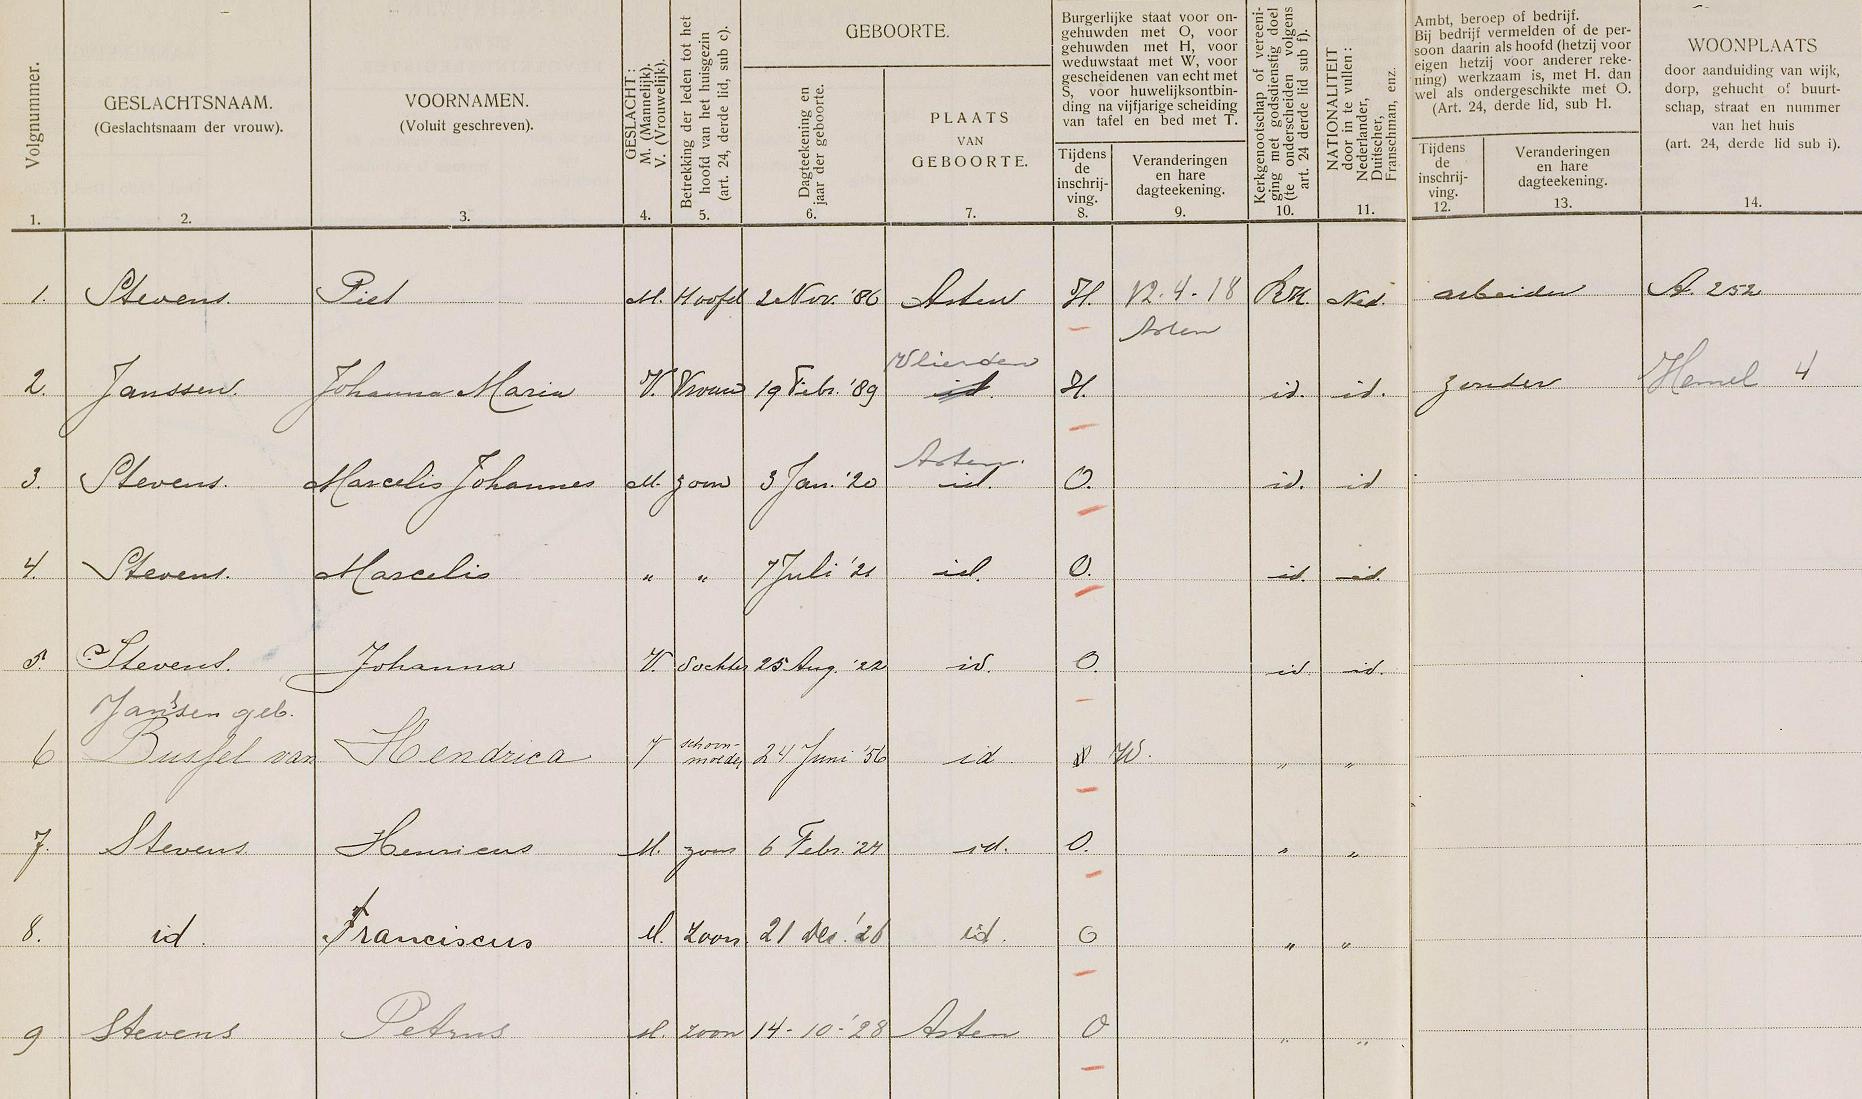 Volgnummer.
1.
GESLACHTSNAAM.
(Geslachtsnaam der vrouw).
2.
VOORNAMEN.
(Voluit geschreven).
3.
GESLACHT:
M. (Mannelijk).
V. (Vrouwelijk).
4.
Betrekking der leden tot het
hoofd van het huisgezin
(art. 24, derde lid, sub c).
5.
GEBOORTE.
Dagteekening en
jaar der geboorte.
6.
PLAATS
VAN
GEBOORTE.
7.
Burgerlijke staat voor on-
gehuwden met O, voor
gehuwden met H, voor
weduwstaat met W, voor
gescheidenen van echt met
S, voor huwelijksontbin-
ding na vijfjarige scheiding
van tafel en bed met T.
Tijdens
de
inschrij-
ving.
8.
Veranderingen
en hare
dagteekening.
9.
Kerkgenootschap of vereeni-
ging met godsdienstig doel
(te onderscheiden volgens
art. 24 derde lid sub f).
10.
NATIONALITEIT
door in te vullen:
Nederlander,
Duitscher,
Franschman, enz.
11.
Ambt, beroep of bedrijf.
Bij bedrijf vermelden of de per-
soon daarin als hoofd (hetzij voor
eigen hetzij voor anderer reke-
ning) werkzaam is, met H. dan
wel als ondergeschikte met O.
(Art. 24, derde lid, sub H.
Tijdens
de
inschrij-
ving.
12.
Veranderingen
en hare
dagteekening.
13.
WOONPLAATS
door aanduiding van wijk,
dorp, gehucht of buurt-
schap, straat en nummer
van het huis
(art. 24, derde lid sub i).
14.
1. Stevens. Piet M. Hoofd 2 Nov. '86 Asten H. 12.4-18 R.K. Ned. arbeider A. 252
Asten
Vlierden
2. Janssen. Johanna Maria V. Vrouw 19 Febr. '89 id. H. id. id. zonder Hemel 4
Asten.
3. Stevens. Marcelis Johannes M. zoon 3 Jan. '20 id. O. id. id
4. Stevens. Marcelis " " 7 Juli '21 id. O. id. id.
5. Stevens. Johanna V. dochter 25 Aug. '22 id. O. id. id.
Jansen geb.
6 Bussel van Hendrica V schoon- moeder 24 Juni '56 id W. " "
7. Stevens Henricus M. zoon 6 Febr. '24 id. O. " "
8. id. Franciscus M. zoon. 21 Dec. '26 id. O " "
9 Stevens Petrus M. zoon 14-10-'28 Asten O " "